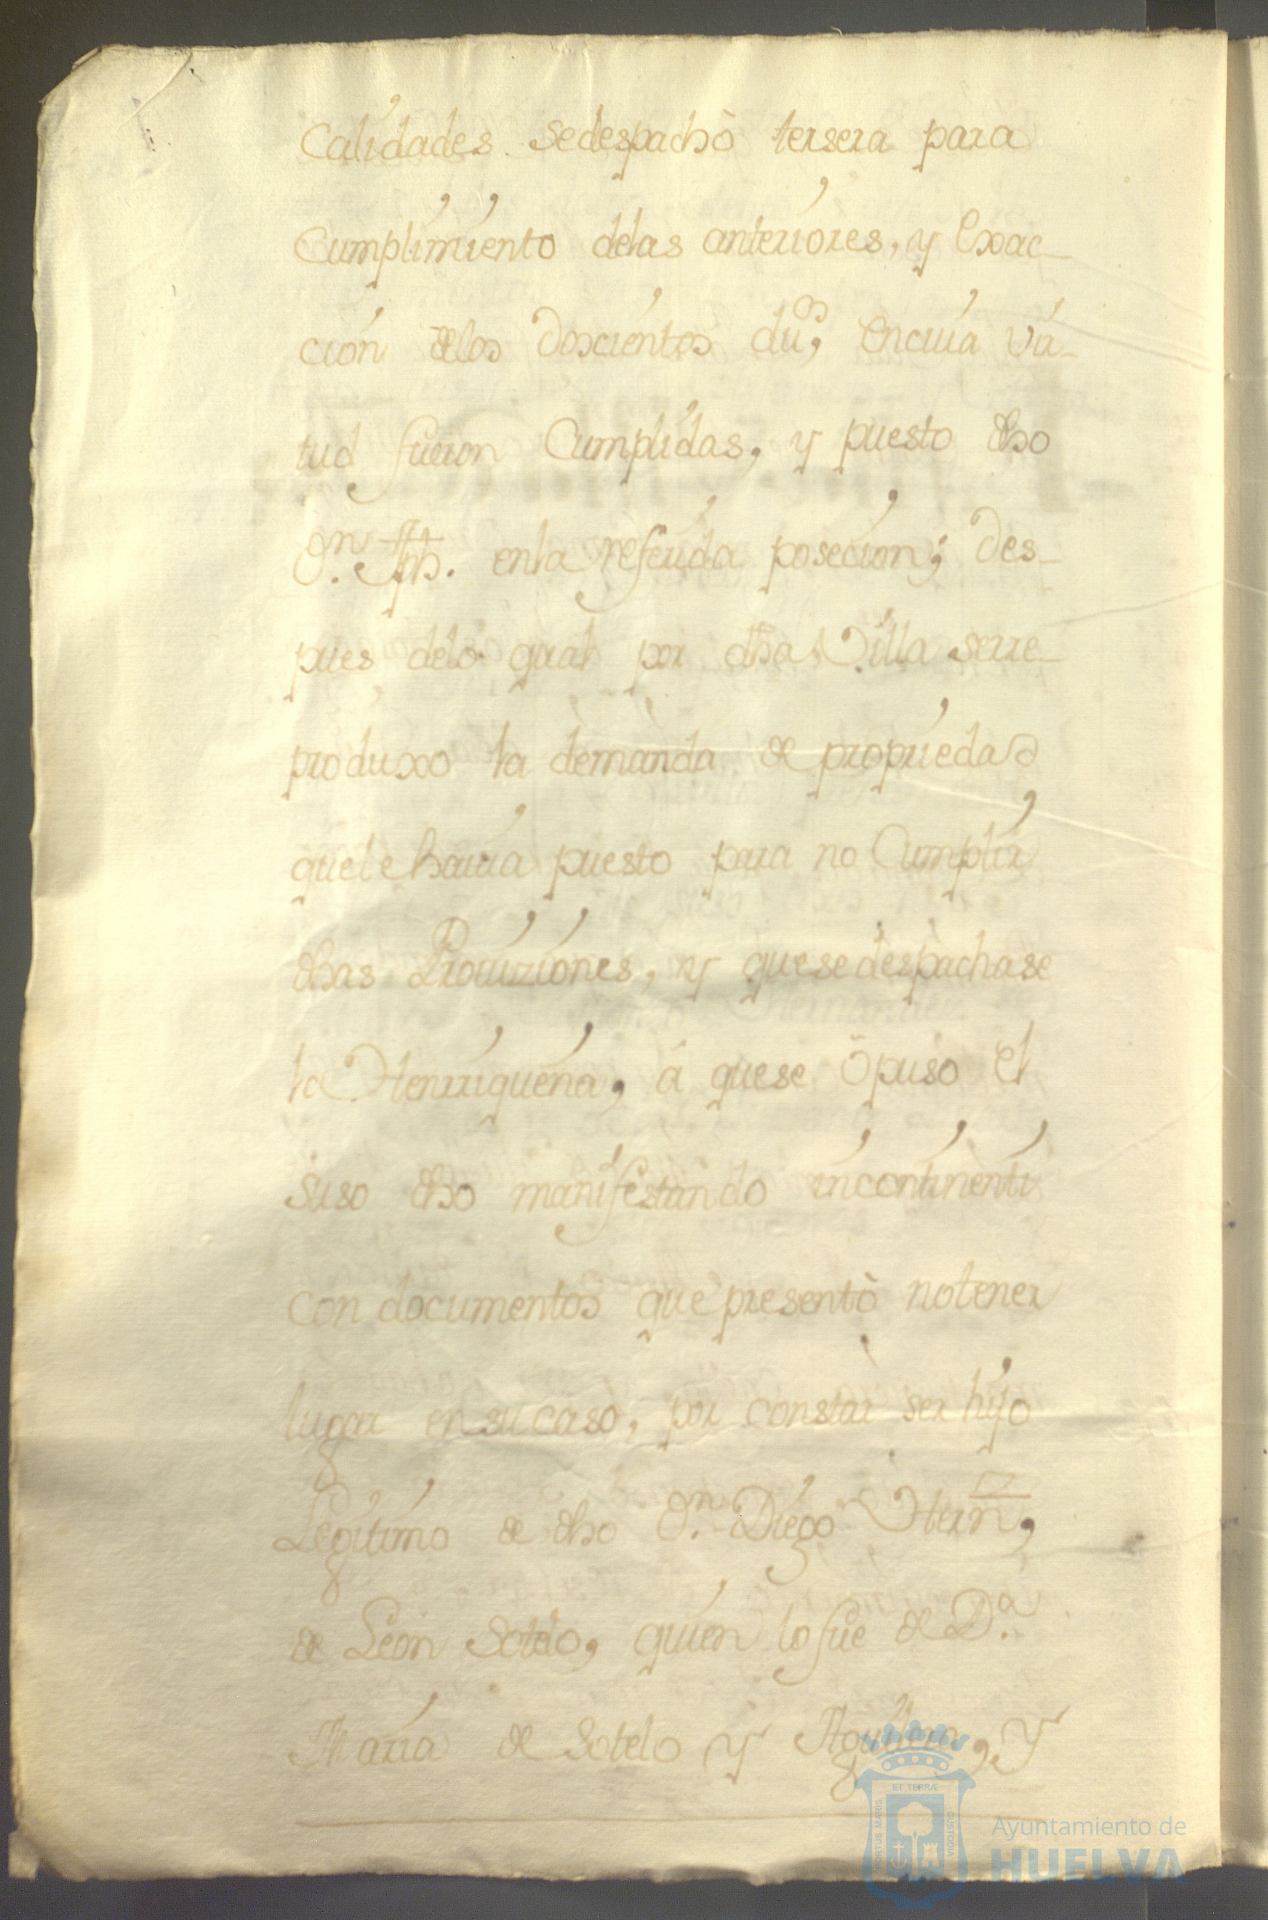 Calidades sedespachò tersera para
Cumplimiento delas anteriores, y Exac-
cion delos Doscientos du.os, Encuia vir-
tud fueron Cumplidas, y puesto dho
Dn. Jph. enla referida posecion; Des-
pues delo qual por dha Villa serre-
produxo la demanda de propriedad
quele havia puesto para no Cumplir
dhas Provizîones, y quesedespachase
la Henrriqueña, á quese opuso el
suso dho manifestando incontinenti
con documentos que presentò notener
lugar ensucaso, por constar ser hijo
Legitimo de dho Dn. Diego Hernz,
de Leon Sotelo, quien lo fue de Da.
Maria de Sotelo y Aguilera, y
ET TERRÆ
PORTUS MARIS
CUSTODIA
Ayuntamiento de
HUELVA